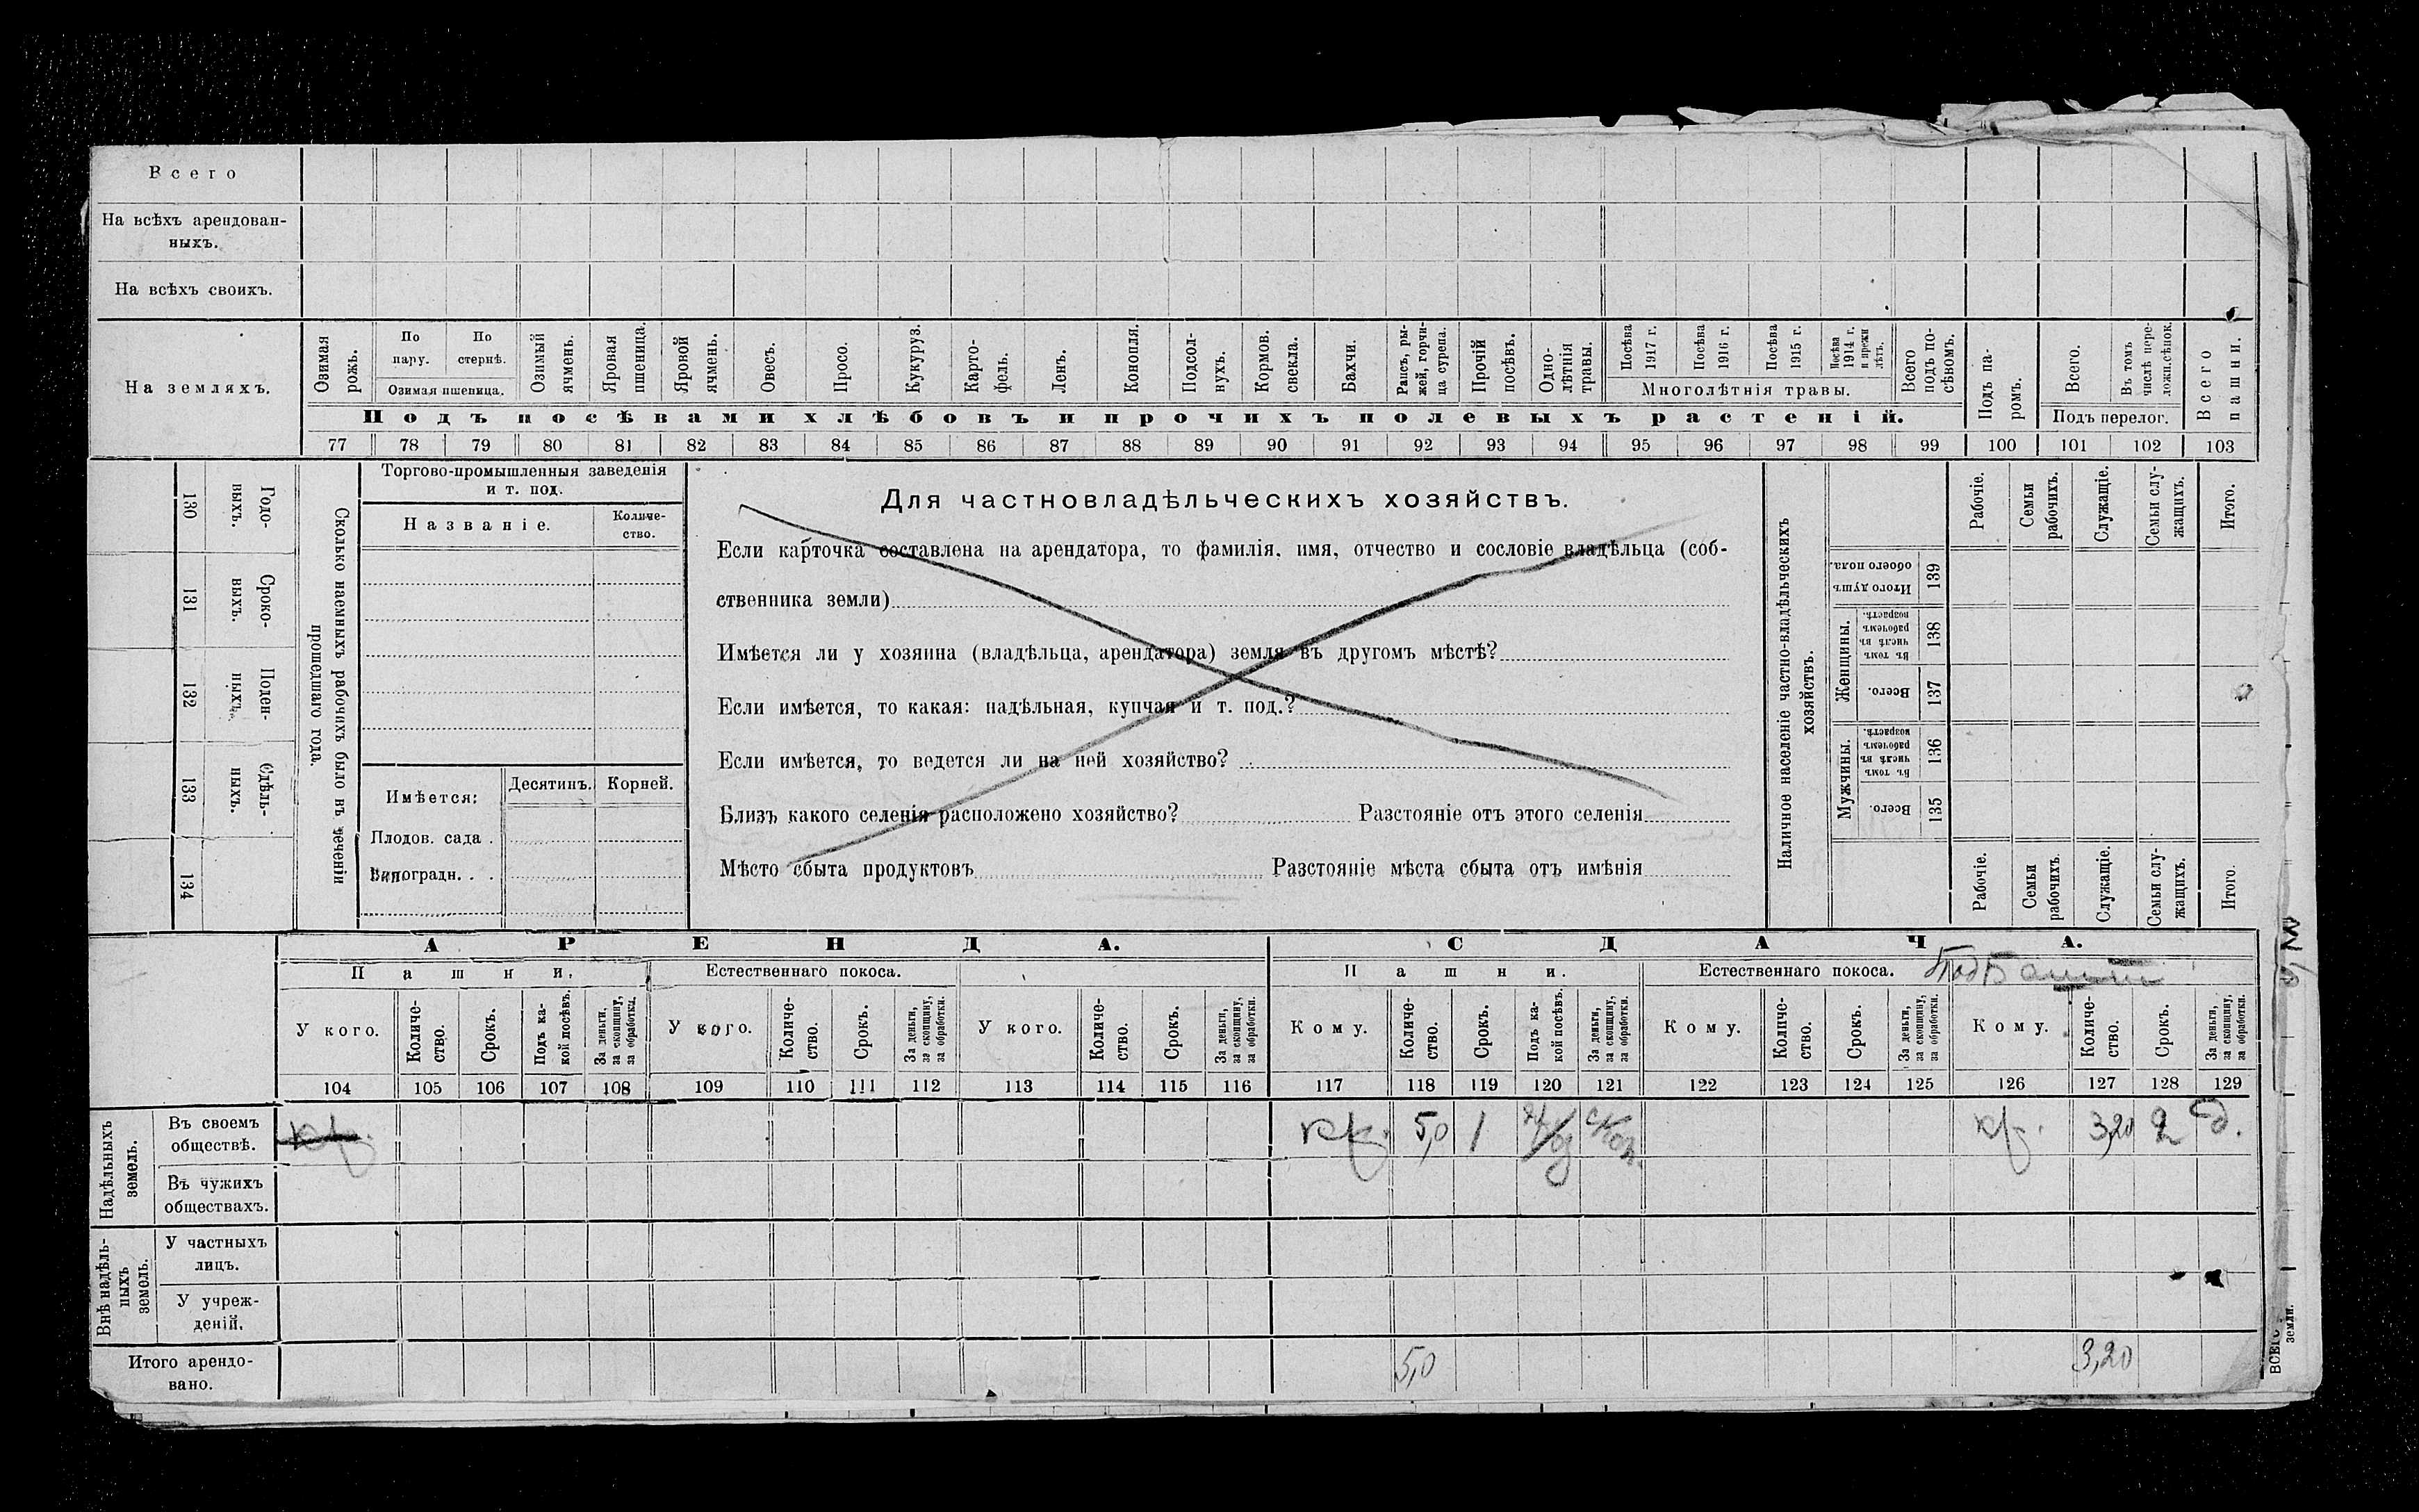 Всего
На всѣхъ арендован-
ныхъ.
На всѣхъ своихъ.
На земляхъ.
Озимая рожь.
По пару.
По стернѣ.
Озимая пшеница.
Озимый ячмень.
Яровая пшеница.
Яровой ячмень.
Овесъ.
Просо.
Кукуруз.
Карто-
фель.
Ленъ.
Конопля.
Подсол-
нухъ.
Кормов.
свекла.
Бахчи.
Рапсъ, ры-
жей, горчи-
ца сурепа.
Прочій
посѣвъ.
Одно-
лѣтнія
травы.
Посѣва
1917 г.
Посѣва
1916 г.
Посѣва
1915 г.
Посѣва
1914 г.
и прежн
лѣтъ.
Многолѣтнія травы.
Всего
подъ по-
сѣвомъ.
Подъ па-
ромъ.
Всего.
Въ томъ
числѣ пере-
ложн.сѣнок.
Подъ перелог.
Всего
пашни.
Подъ посѣвами хлѣбовъ и прочихъ полевыхъ растеній.
77 78 79 80 81 82 83 84 85 86 87 88 89 90 91 92 93 94 95 96 97 98 99 100 101 102 103
130
Годо-
выхъ.
131
Сроко-
выхъ.
132
Поден-
ныхъ.
133
Сдѣль-
ныхъ.
134
Сколько наемныхъ рабочихъ было въ теченіи
прошедшаго года.
Торгово-промышленныя заведенія
и т. под.
Названіе.
Количе-
ство.
Имѣется:
Десятинъ.
Корней.
Плодов. сада .
Виноградн. . .
Для частновладѣльческихъ хозяйствъ.
Если карточка составлена на арендатора, то фамилія, имя, отчество и сословіе владѣльца (соб-
ственника земли)
Имѣется ли у хозяина (владѣльца, арендатора) земля въ другомъ мѣстѣ?
Если имѣется, то какая: надѣльная, купчая и т. под.?
Если имѣется, то ведется ли на ней хозяйство?
Близъ какого селенія расположено хозяйство? Разстояніе отъ этого селенія
Мѣсто сбыта продуктовъ Разстояніе мѣста сбыта отъ имѣнія
Наличное населеніе частно-владѣльческихъ
хозяйствъ.
Рабочіе.
Семьи
рабочихъ.
Служащіе.
Семьи слу-
жащихъ.
Итого.
Итого душъ
обоего пола.
139
Женщины.
Въ томъ
числѣ въ
рабочемъ
возрастѣ.
138
Всего.
137
Мужчины.
Въ томъ
числѣ въ
рабочемъ
возрастѣ.
136
Всего.
135
Рабочіе.
Семьи
рабочихъ.
Служащіе.
Семьи слу-
жащихъ.
Итого.
АРЕНДА.
СДАЧА.
Пашни.
Естественнаго покоса.
Пашни.
Естественнаго покоса.
У кого.
Количе-
ство.
Срокъ.
Подъ ка-
кой посѣвъ.
За деньги,
за скопщину,
за обработки.
У кого.
Количе-
ство.
Срокъ.
За деньги,
за скопщину,
за обработки.
У кого.
Количе-
ство.
Срокъ.
За деньги,
за скопщину,
за обработки.
Кому.
Количе-
ство.
Срокъ.
Подъ ка-
кой посѣвъ.
За деньги,
за скопщину,
за обработки.
Кому.
Количе-
ство.
Срокъ.
За деньги,
за скопщину,
за обработки.
Кому.
Количе-
ство.
Срокъ.
За деньги,
за скопщину,
за обработки.
104 105 106 107 108 109 110 111 112 113 114 115 116 117 118 119 120 121 122 123 124 125 126 127 128 129
Надѣльныхъ
земель.
Въ своемъ
обществѣ.
кр.
кр. 5,0 1
кр. 3,20 2 д.
Въ чужихъ
обществахъ.
Внѣ надѣль-
ныхъ
земель.
У частныхъ
лицъ.
У учреж-
деній.
Итого арендо-
вано.
5,0
3,20
ВСЕГО
земли.